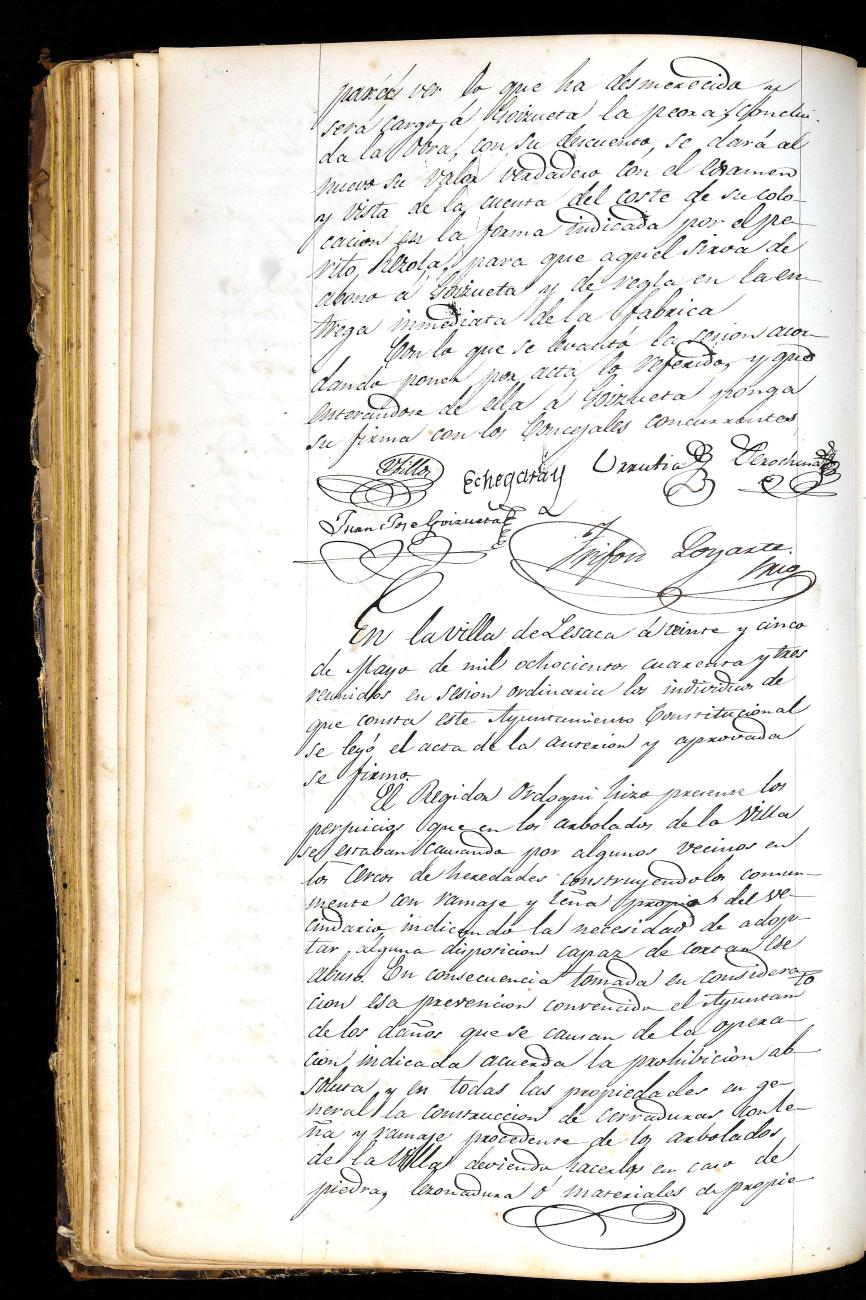 para ver lo que ha desmerecido y
será cargo á Goizueta la peora; conclui-
da la Obra, con su descuento, se dará al
nuevo su valor verdadero con el examen
y vista de la cuenta del coste de su colo-
cacion en la forma indicada por el pe-
rito, Rezola, para que aquel sirva de
abono á Goizueta y de regla en la en-
trega inmediata de la fabrica
Con lo que se levantó la sesion acor-
dando poner por acta lo referido, y que
enterandose de ella á Goizueta ponga
su firma con los Concejales concurrentes
Echegaray Urrutia
Juan Jose Goizueta
Trifon Loyarte.
Srio
En la villa de Lesaca á veinte y cinco
de Mayo de mil ochocientos cuarenta y tres
reunidos en sesion ordinaria los individuos de
que consta este Ayuntamiento Constitucional
se leyó el acta de la anterior y aprovada
se firmo.
El Regidor Ordoqui hizo presente los
perjuicios que en los arbolados de la Villa
se estaban causando por algunos vecinos en
los Cercos de heredades construyendolos comun-
mente con ramaje y leña propia del ve-
cindario, indicando la necesidad de adop-
tar alguna disposicion capaz de cortar ese
abuso. En consecuencia tomada en considera-
cion esa prevencion convencido el Ayuntamto
de los daños que se causan de la opera-
cion indicada acuerda la prohibicion ab
soluta, y en todas las propiedades en ge-
neral la construccion de cerraduras con le-
ña y ramaje procedente de los arbolados
de la Villa deviendo hacerlos en caso de
piedra, ezonadura ó materiales de propie-